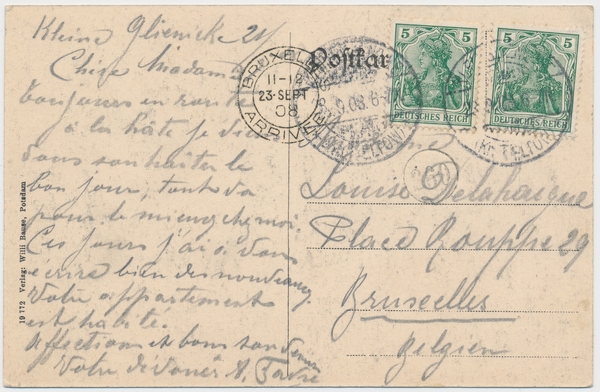 Kleine Glienicke 21
Chère Madame
Toujours en route
à la hâte je viens
vous souhaiter le
bon jour, tout va
pour le mieux chez moi.
Ces jours j'ai à vous
écrire bien des nouveautés.
Votre appartement
est habité.
Affection et bons souvenirs
Votre dévouée
19 772 Verlag: Willi Basse, Potsdam
Postkar
BRUXELLES
11-12
23-SEPT
08
5 5
DEUTSCHES REICH
5 5
DEUTSCHES REICH
(KR. TELTOW)
60
Louise Delahaique
Place Rouppe 29
Bruxelles
Belgien